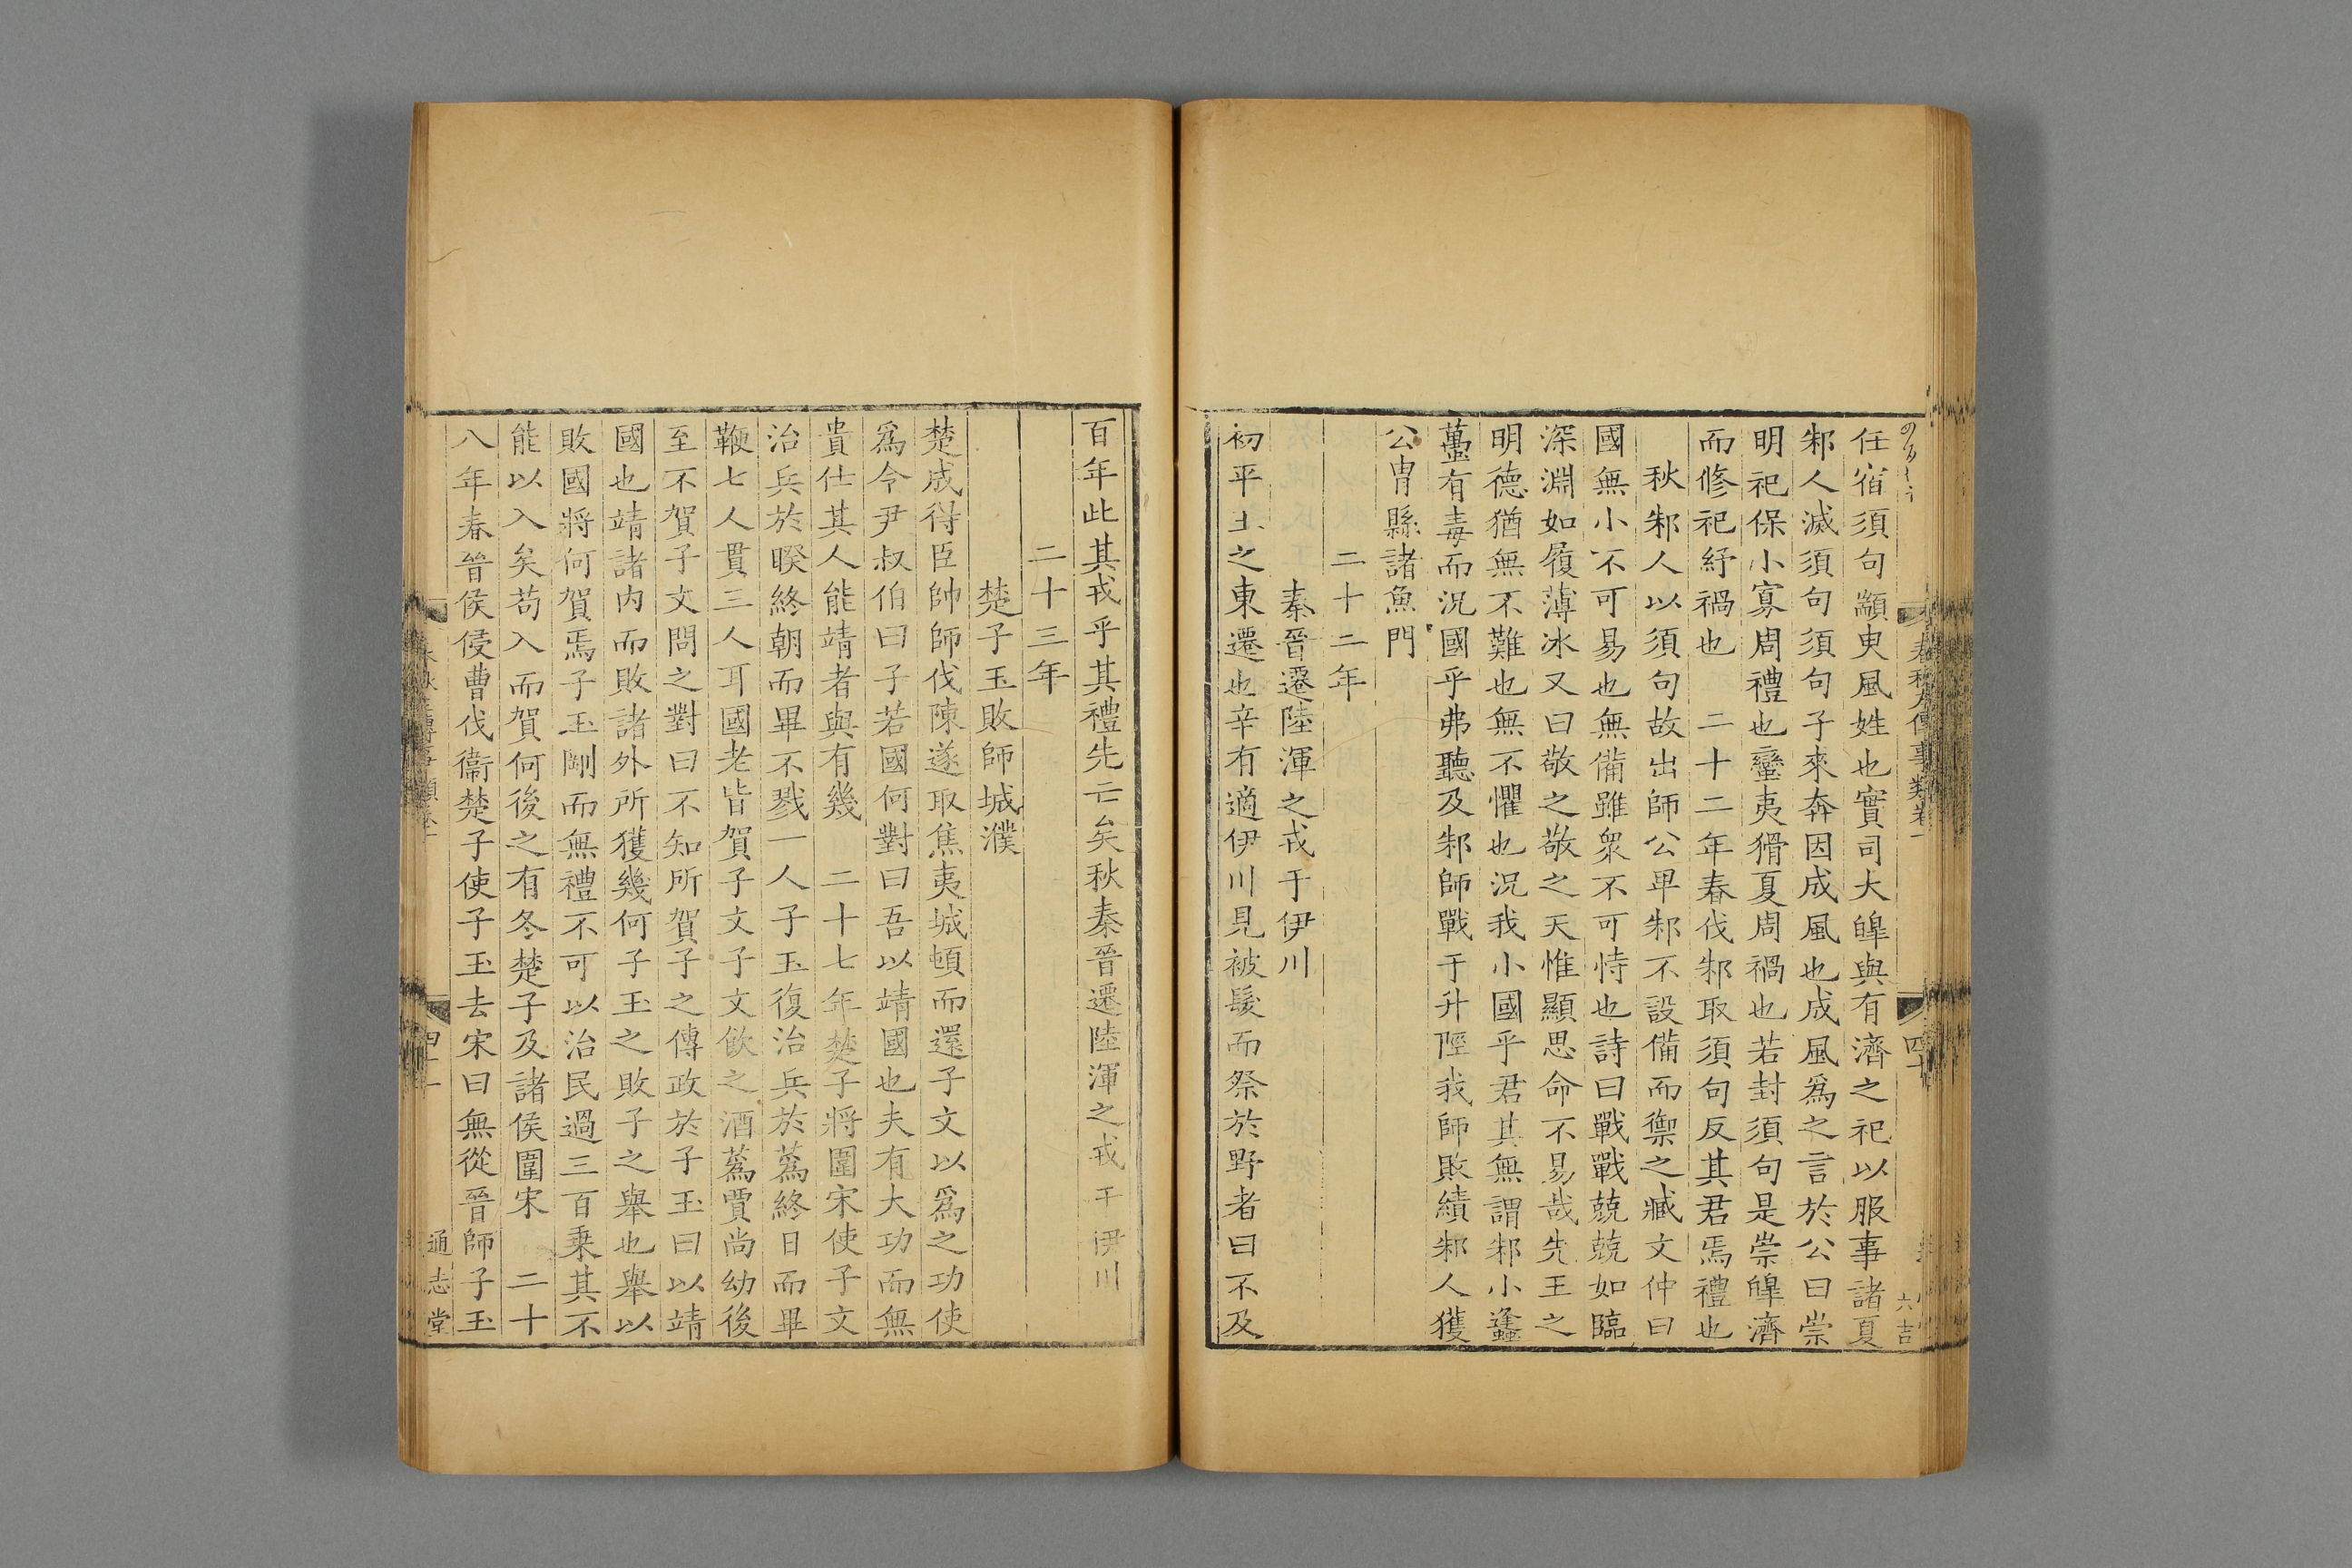 任宿須句顓臾風姓也實司大皥與有濟之祀以服事諸夏
邾人滅須句須句子來奔因成風也成風爲之言於公曰崇
明祀保小寡周禮也蠻夷猾夏周禍也若封須句是崇皥濟
而修祀紓禍也　二十二年春伐邾取須句反其君焉禮也
秋邾人以須句故出師公卑邾不設備而禦之臧文仲曰
國無小不可易也無備雖衆不可恃也詩曰戰戰兢兢如臨
深淵如履薄冰又曰敬之敬之天惟顯思命不易哉先王之
明德猶無不難也無不懼也況我小國乎君其無謂邾小蠭
蠆有毒而況國乎弗聽及邾師戰于升陘我師敗績邾人獲
公胄縣諸魚門
二十二年
秦晉遷陸渾之戎于伊川
初平王之東遷也辛有適伊川見被髮而祭於野者曰不及
春秋左傳事類卷一
四十
六吉
百年此其戎乎其禮先亡矣秋秦晉遷陸渾之戎于伊川
二十三年
楚子玉敗師城濮
楚成得臣帥師伐陳遂取焦夷城頓而還子文以爲之功使
爲令尹叔伯曰子若國何對曰吾以靖國也夫有大功而無
貴仕其人能靖者與有幾　二十七年楚子將圍宋使子文
治兵於睽終朝而畢不戮一人子玉復治兵於蒍終日而畢
鞭七人貫三人耳國老皆賀子文子文飲之酒蒍賈尚幼後
至不賀子文問之對曰不知所賀子之傳政於子玉曰以靖
國也靖諸內而敗諸外所獲幾何子玉之敗子之舉也舉以
敗國將何賀焉子玉剛而無禮不可以治民過三百乗其不
能以入矣苟入而賀何後之有冬楚子及諸侯圍宋　二十
八年春晉侯侵曹伐衞楚子使子玉去宋曰無從晉師子玉
四十一
通志堂